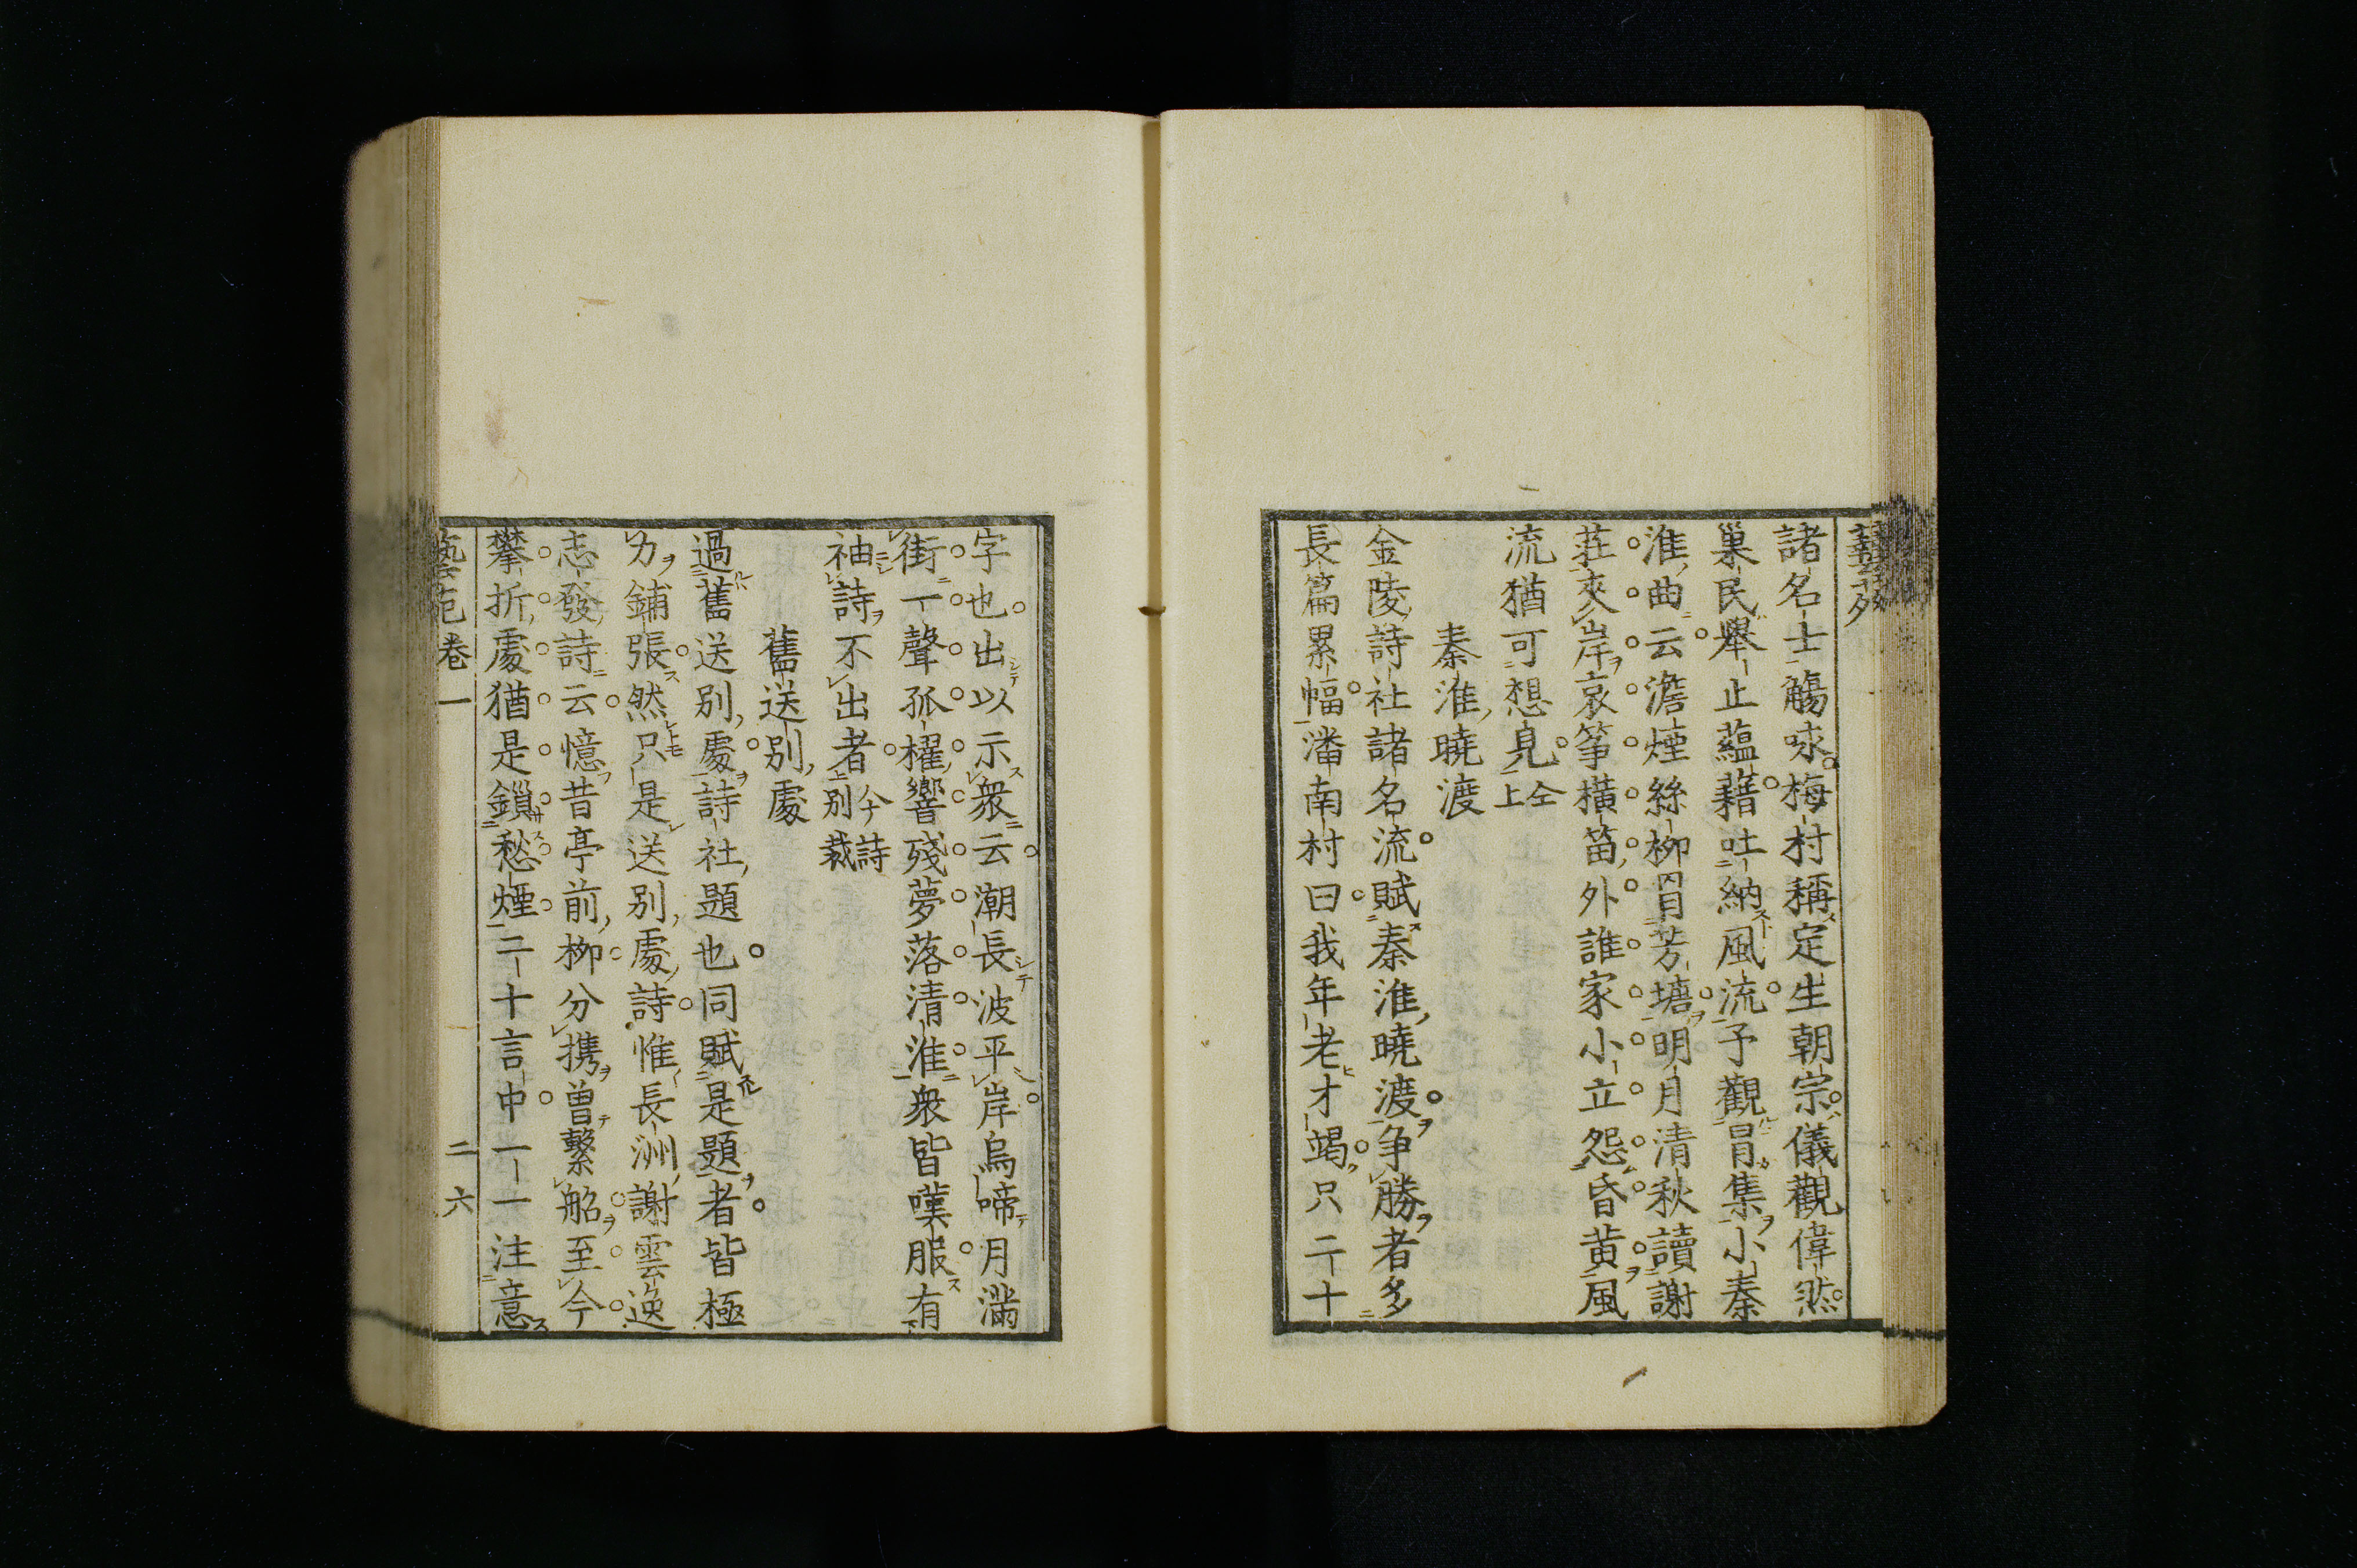 諸名士觴咏梅村稱定生朝宗儀觀偉然
巢民擧止蘊藉吐納風流予觀冐集小秦
淮曲云澹煙絲柳罥芳塘明月清秋讀謝
莊夾岸哀箏橫笛外誰家小立怨昏黄風
流猶可想見仝上
秦淮曉渡
金陵詩社諸名流賦秦淮曉渡爭勝者多
長篇累幅潘南村曰我年老才竭只二十
字也出以示衆云潮長波平岸烏啼月滿
街一聲孤櫂響殘夢落清淮衆皆嘆服有
袖詩不出者仝上詩別裁
舊送別處
過舊送別處詩社題也同賦是題者皆極
力鋪張然只是送別處詩惟長洲謝雲逸
志發詩云憶昔亭前柳分携曾繫船至今
攀折處猶是鎖愁煙二十言中一一注意
藝苑卷一 二六